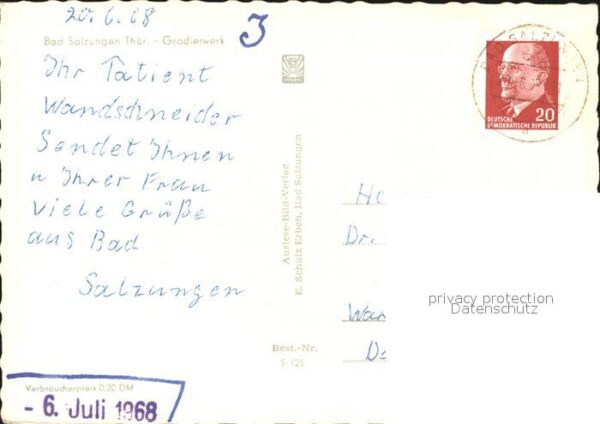 20.6.68
3
Bad Salzungen Thür. - Gradierwerk
Ihr Patient
Wandschneider
Sendet Ihnen
u Ihrer Frau
viele Grüße
aus Bad
Salzungen
Verbraucherpreis 0,20 DM
- 6. Juli 1968
Auslese-Bild-Verlag
E. Schulz Erben, Bad Salzungen
Best.-Nr.
S 125
BAD SALZUNGEN
20
DEUTSCHE
DEMOKRATISCHE REPUBLIK
Dr.
privacy protection
Datenschutz